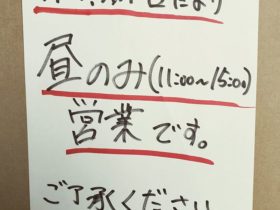 より
昼のみ(11:00~15:00)
営業です。
ご了承ください